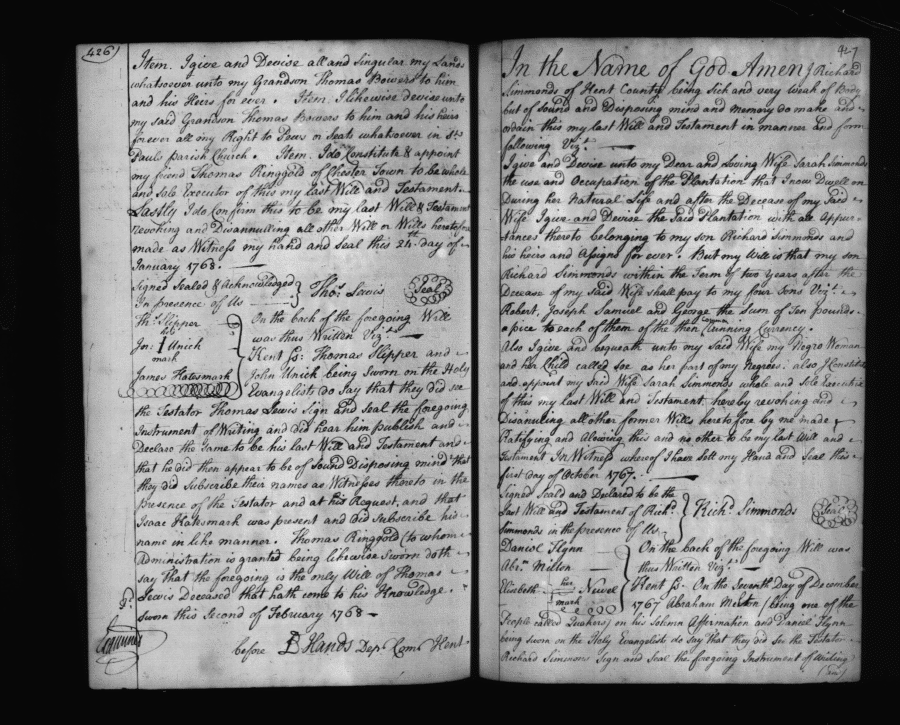 426
Item. I give and Devise all and Singular my Lands
whatsoever unto my Grandson Thomas Bowers to him
and his Heirs for ever. Item. I likewise devise unto
my said Grandson Thomas Bowers to him and his heirs
forever all my Right to Pews or Seats whatsoever in St
Pauls parish Church. Item. I do Constitute & appoint
my friend Thomas Ringgold of Chester Town to be whole
and Sole Executor of this my last Will and Testament
Lastly I do Confirm this to be my last Will & Testament
revoking and Disannulling all other Will or Wills heretofore
made as Witness my hand and Seal this 24th day of
January 1768.
Signed Sealed & Acknowledged
In presence of Us
Thos Lewis
Seal
Thos Slipper
his
Jno: I Unick
mark
James Hatesmark
On the back of the foregoing Will
was thus Written Vizt
Kent Ss: Thomas Slipper and
John Unick being Sworn on the Holy
Evangelists do Say that they did see
the Testator Thomas Lewis Sign and Seal the foregoing
Instrument of Writing and did hear him publish and
Declare the Same to be his last Will and Testament and
that he did then appear to be of Sound Disposing mind that
they did Subscribe their names as Witnesses thereto in the
presence of the Testator and at his Request, and that
Isaac Hatesmark was present and did Subscribe his
name in like manner. Thomas Ringgold (to whom
Administration is granted being likewise Sworn doth
say that the foregoing is the only Will of Thomas
Lewis Deceased that hath come to his Knowledge.
Sworn this Second of February 1768
before D Hands Dep Com Kent
427
In the Name of God Amen I Richard
Simmonds of Kent County being Sick and very Weak of Body
but of Sound and Disposing mind and memory do make and
ordain this my last Will and Testament in manner and form
following Vizt
I give and Devise unto my Dear and Loving Wife Sarah Simmonds
the use and Occupation of the Plantation that I now Dwell on
During her Natural Life and after the Decease of my Said
Wife I give and Devise the Said Plantation with all Appur
tances thereto belonging to my son Richard Simmonds and
his heirs and Assigns for ever. But my Will is that my son
Richard Simmonds within the Term of two years after the
Decease of my Said Wife shall pay to my four Sons Vizt
Robert, Joseph Samuel and George the Sum of Ten pounds
a pice to each of them of the then Cunning Currency.
Also I give and bequeath unto my Said Wife my Negro Woman
and her Child called as her part of my Negroes. also I Constitute
and appoint my Said Wife Sarah Simmonds whole and Sole Executrix
of this my last Will and Testament, hereby revoking and
Disanuling all other former Wills heretofore by me made
Ratifying and Alowing this and no other to be my last Will and
Testament In Witness whereof I have Sett my Hand and Seal this
first day of October 1767.
Signed Seald and Declared to be the
Last Will and Testament of Richd
Simmonds in the presence of Us
Richd Simmonds
Seal
Daniel Flynn
Abrm Milton
Elisebeth her Newel
mark
On the back of the foregoing Will was
thus Written Vizt
Kent Ss: On the Seventh Day of December
1767 Abraham Milton (being one of the
People called Quakers) on his Solimn Affirmation and Daniel Flynn
being sworn on the Holy Evangelists do say That they did See the Testator
Richard Simmons Sign and Seal the foregoing Instrument of Writing
(and)